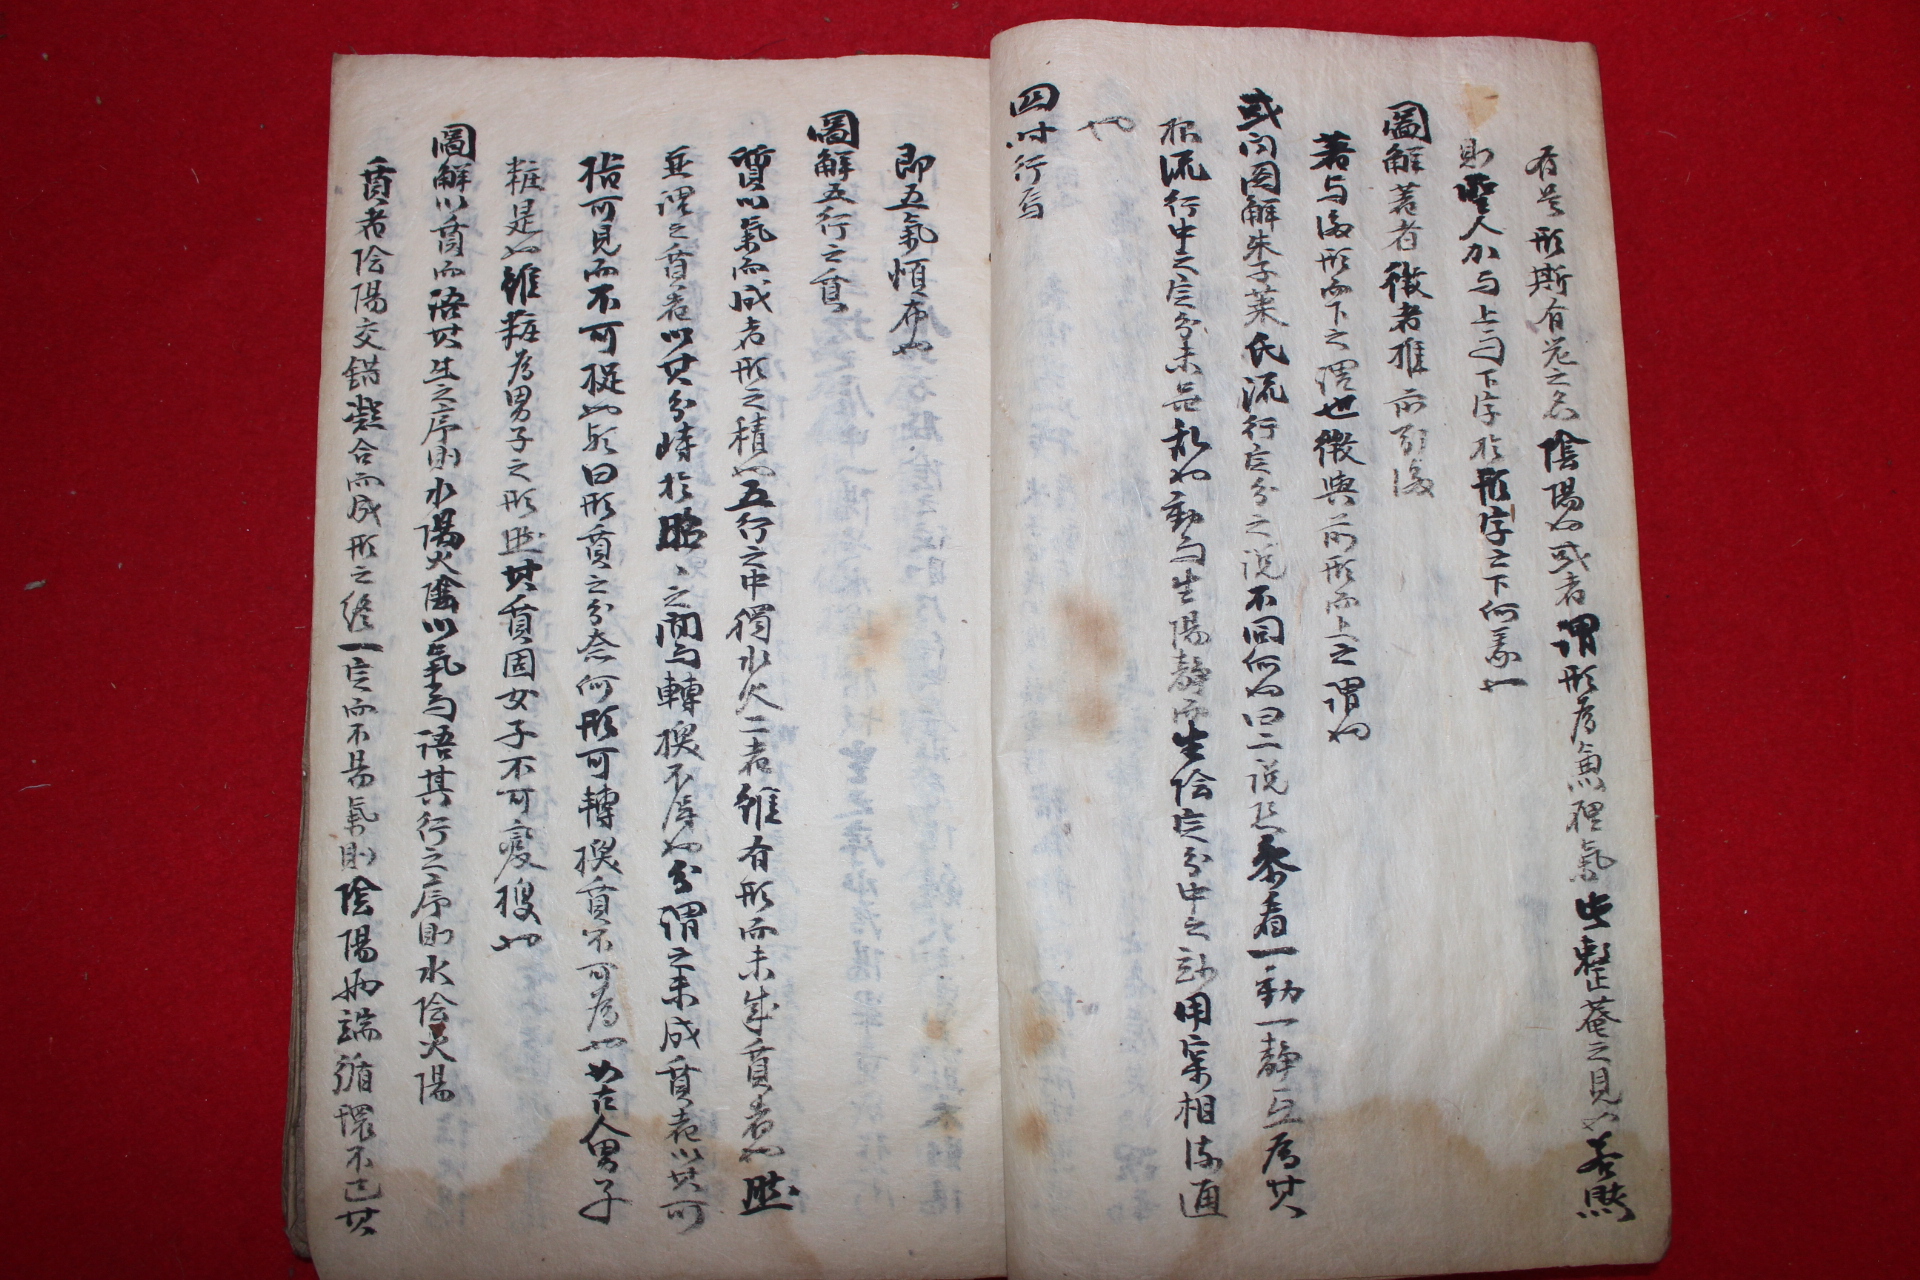 有是形斯有是之名陰陽也或者謂形爲魚理氣此整菴之見也若然
則聖人加而上而下字於形字之下何義也
圖解著者微者推前引後
著与後形而下之謂也微與前形而上之謂也
或问圖解朱子葉氏流行定分之说不同何也曰二说然叅看一動一静互爲其
根流行中之定分未甞亂也動而生陽静而生陰定分中之妙用実相流通
也
四时行焉
即五氣順布也
圖解五行之質
質以氣而成者形之積也五行之中獨水火二者雖有形而未成質者也然
並謂之質者以其分時於昭、之間而轉換不得也分謂之未成質者以其可
指可見而不可捉也或曰形質之分奈何形可轉換質不可爲也如古人男子
粧是也雖粧爲男子之形然其質固女子不可變換也
圖解以質而語其生之序則水陽火陰以氣而語其行之序則水陰火陽
質者陰陽交錯凝合而成形之終一定而不易氣則陰陽兩端循環不已其